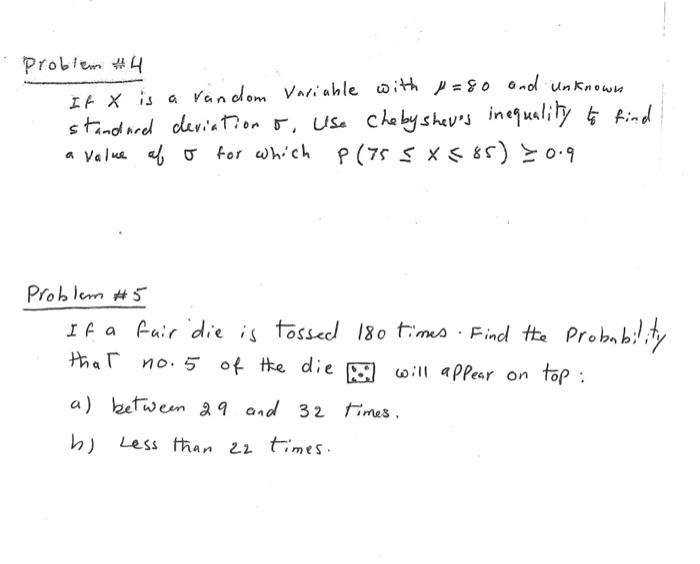 Problem #4
If X is a random Variable with μ=80 and unknown
standard deviation σ, Use Chebyshev's inequality to find
a value of σ for which P(75 ≤ X ≤ 85) ≥ 0.9
Problem #5
If a fair die is tossed 180 times. Find the Probability
that no. 5 of the die will appear on top:
a) between 29 and 32 times.
b) Less than 22 times.